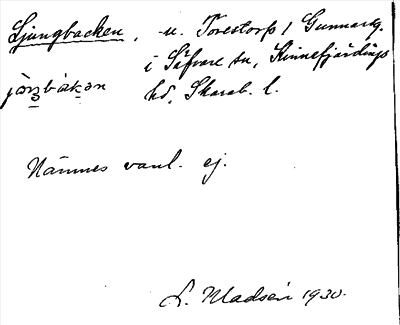 Ljungbacken, u. Torestorp 1 Gunnarsg.
i Säfvare sn, Kinnefjärdings
hd, Skarab. l.
Nämnes vanl. ej.
L. Madsén 1930.